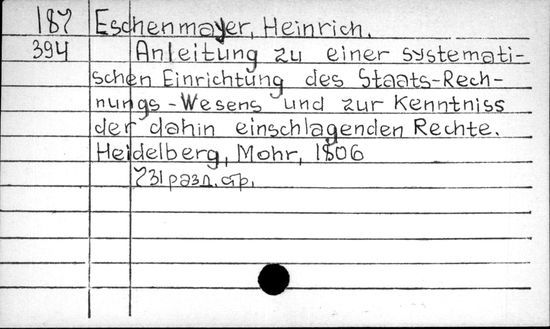 187 Eschenmayer, Heinrich.
394 Anleitung zu einer systemati-
schen Einrichtung des Staats-Rech-
nungs-Wesens und zur Kenntniss
der dahin einschlagenden Rechte.
Heidelberg, Mohr, 1806
731 разд. стр.